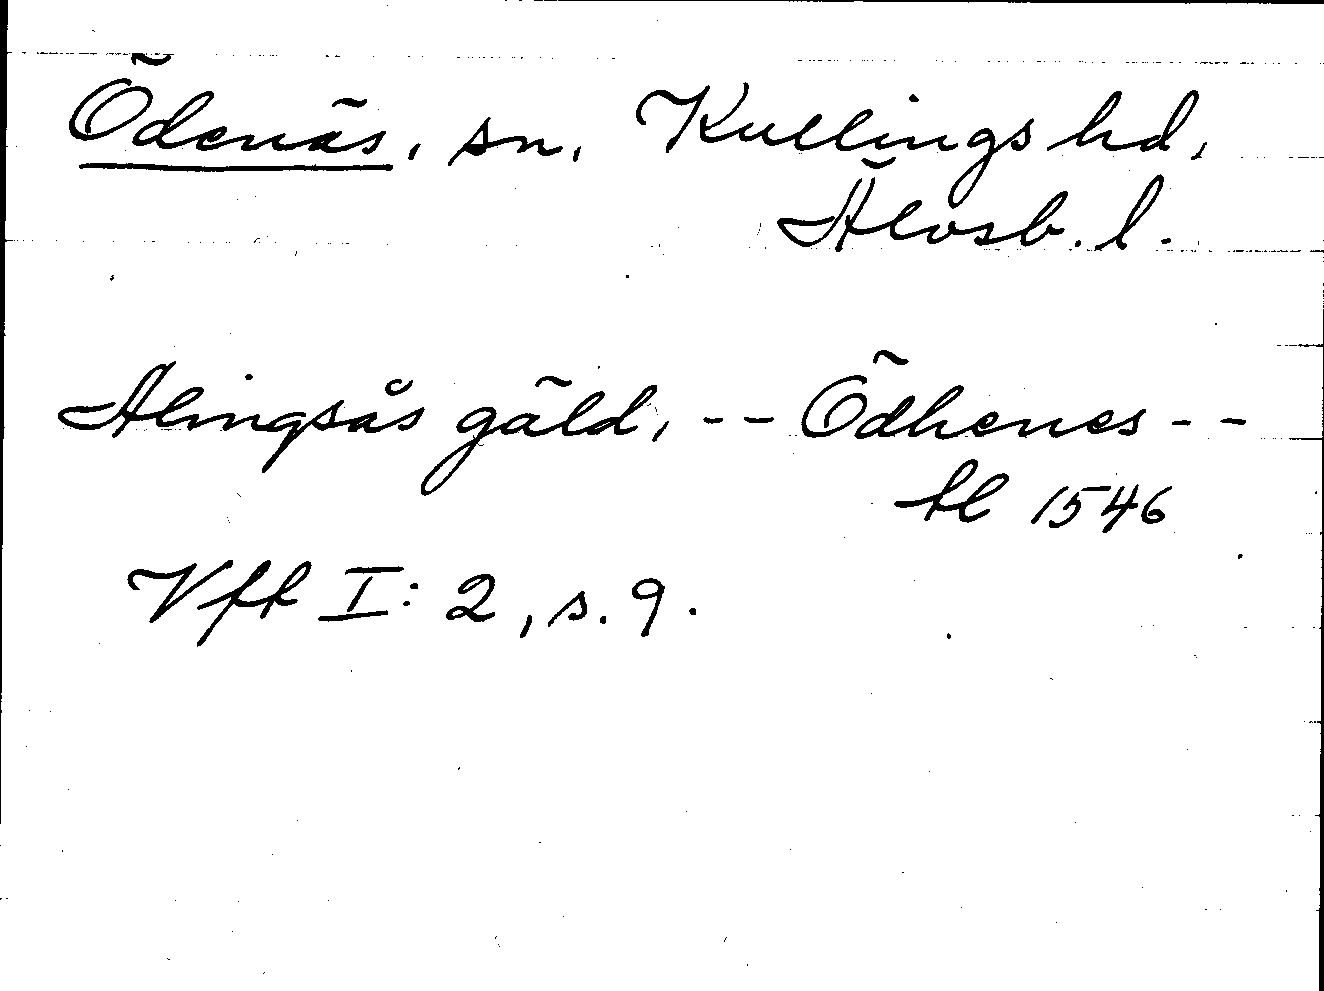 Ödenäs, sn, Kullings hd,
Älvsb. l.
Alingsås gäld, -- Ödhenes --
tl 1546
Vft I: 2, s. 9.